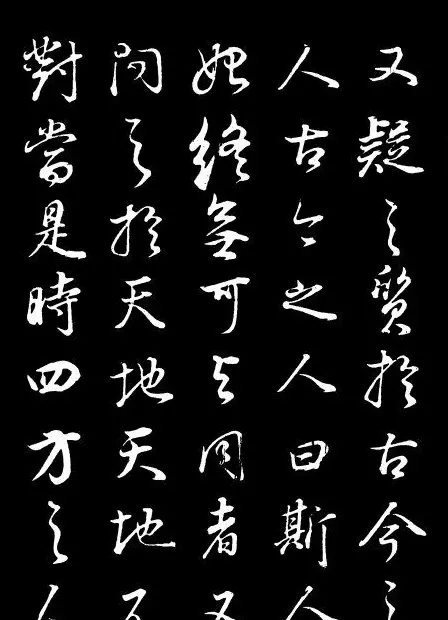 又疑之質於古今之
人古今之人曰斯人
始終無可與同者又
問之於天地天地不
對當是時四方之人